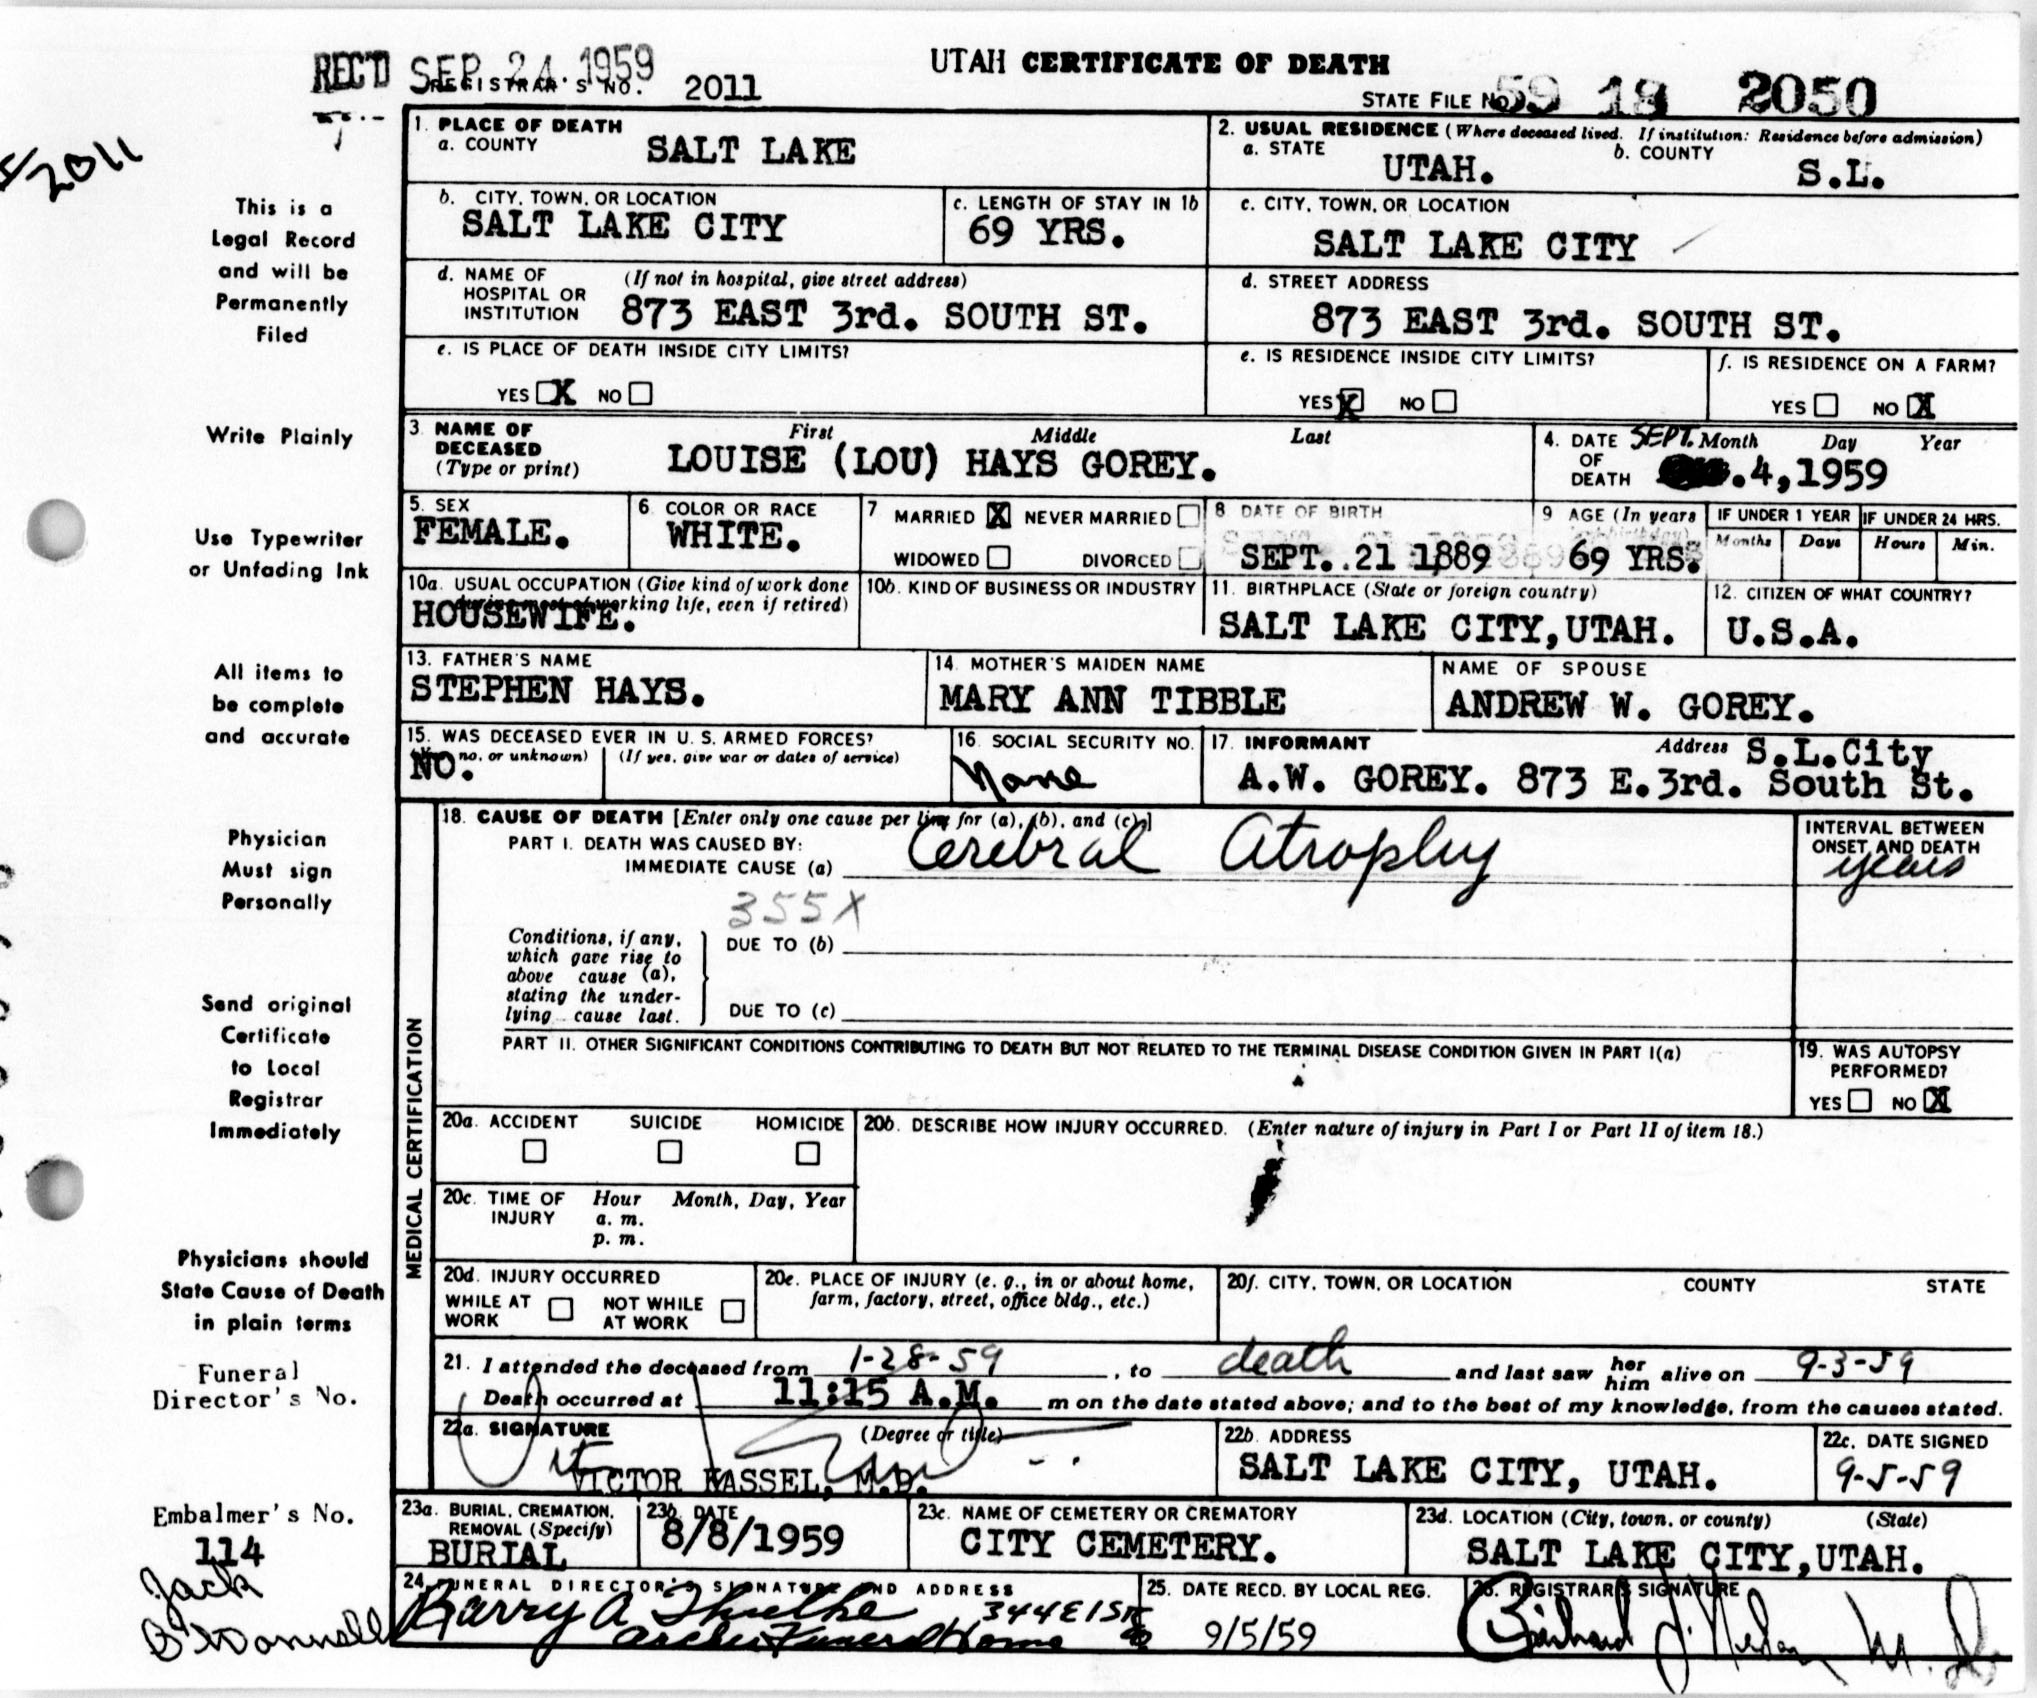 REC'D SEP 24 1959
REGISTRAR'S NO. 2011
UTAH CERTIFICATE OF DEATH
STATE FILE NO. 59 18 2050
2011
This is a
Legal Record
and will be
Permanently
Filed
Write Plainly
Use Typewriter
or Unfading Ink
All items to
be complete
and accurate
Physician
Must sign
Personally
Send original
Certificate
to Local
Registrar
Immediately
Physicians should
State Cause of Death
in plain terms
Funeral
Director's No.
Embalmer's No.
114
Jack
O'Donnell
1. PLACE OF DEATH
a. COUNTY SALT LAKE
2. USUAL RESIDENCE (Where deceased lived. If institution: Residence before admission)
a. STATE UTAH. b. COUNTY S.L.
b. CITY, TOWN, OR LOCATION
SALT LAKE CITY
c. LENGTH OF STAY IN 1b
69 YRS.
c. CITY, TOWN, OR LOCATION
SALT LAKE CITY
d. NAME OF HOSPITAL OR INSTITUTION (If not in hospital, give street address)
873 EAST 3rd. SOUTH ST.
d. STREET ADDRESS
873 EAST 3rd. SOUTH ST.
e. IS PLACE OF DEATH INSIDE CITY LIMITS?
YES X NO
e. IS RESIDENCE INSIDE CITY LIMITS?
YES X NO
f. IS RESIDENCE ON A FARM?
YES NO X
3. NAME OF DECEASED (Type or print) First Middle Last
LOUISE (LOU) HAYS GOREY.
4. DATE OF DEATH Month Day Year
SEPT. 4, 1959
5. SEX
FEMALE.
6. COLOR OR RACE
WHITE.
7 MARRIED X NEVER MARRIED
WIDOWED DIVORCED
8 DATE OF BIRTH
SEPT. 21 1889
9 AGE (In years
69 YRS.
IF UNDER 1 YEAR IF UNDER 24 HRS.
Months Days Hours Min.
10a. USUAL OCCUPATION (Give kind of work done during most of working life, even if retired)
HOUSEWIFE.
10b. KIND OF BUSINESS OR INDUSTRY
11. BIRTHPLACE (State or foreign country)
SALT LAKE CITY, UTAH.
12. CITIZEN OF WHAT COUNTRY?
U.S.A.
13. FATHER'S NAME
STEPHEN HAYS.
14. MOTHER'S MAIDEN NAME
MARY ANN TIBBLE
NAME OF SPOUSE
ANDREW W. GOREY.
15. WAS DECEASED EVER IN U. S. ARMED FORCES?
no, or unknown) (If yes, give war or dates of service)
NO.
16. SOCIAL SECURITY NO.
None
17. INFORMANT Address
A.W. GOREY. 873 E.3rd. South St. S.L.City
MEDICAL CERTIFICATION
18. CAUSE OF DEATH [Enter only one cause per line for (a), (b), and (c).]
PART I. DEATH WAS CAUSED BY:
IMMEDIATE CAUSE (a) Cerebral Atrophy
INTERVAL BETWEEN ONSET AND DEATH
years
355X
Conditions, if any, which gave rise to above cause (a), stating the underlying cause last.
DUE TO (b)
DUE TO (c)
PART II. OTHER SIGNIFICANT CONDITIONS CONTRIBUTING TO DEATH BUT NOT RELATED TO THE TERMINAL DISEASE CONDITION GIVEN IN PART I(a)
19. WAS AUTOPSY PERFORMED?
YES NO X
20a. ACCIDENT SUICIDE HOMICIDE
20b. DESCRIBE HOW INJURY OCCURRED. (Enter nature of injury in Part I or Part II of item 18.)
20c. TIME OF INJURY Hour Month, Day, Year
a. m.
p. m.
20d. INJURY OCCURRED
WHILE AT WORK NOT WHILE AT WORK
20e. PLACE OF INJURY (e. g., in or about home, farm, factory, street, office bldg., etc.)
20f. CITY, TOWN, OR LOCATION COUNTY STATE
21. I attended the deceased from 1-28-59, to death and last saw her him alive on 9-3-59
Death occurred at 11:15 A.M. m on the date stated above; and to the best of my knowledge, from the causes stated.
22a. SIGNATURE (Degree or title)
VICTOR KASSEL, M.D.
22b. ADDRESS
SALT LAKE CITY, UTAH.
22c. DATE SIGNED
9-5-59
23a. BURIAL, CREMATION, REMOVAL (Specify)
BURIAL
23b. DATE
8/8/1959
23c. NAME OF CEMETERY OR CREMATORY
CITY CEMETERY.
23d. LOCATION (City, town, or county) (State)
SALT LAKE CITY, UTAH.
24. FUNERAL DIRECTOR'S SIGNATURE AND ADDRESS
Harry A 344 E 1 St
Funeral Home
25. DATE RECD. BY LOCAL REG.
9/5/59
26. REGISTRAR'S SIGNATURE
M.D.